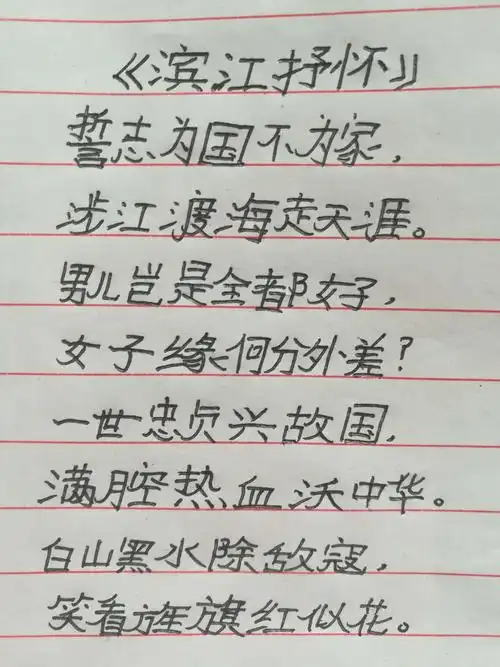 《滨江抒怀》
誓志为国不为家,
涉江渡海走天涯。
男儿岂是全都女子,
女子缘何分外差?
一世忠贞兴故国,
满腔热血沃中华。
白山黑水除敌寇,
笑看旌旗红似花。